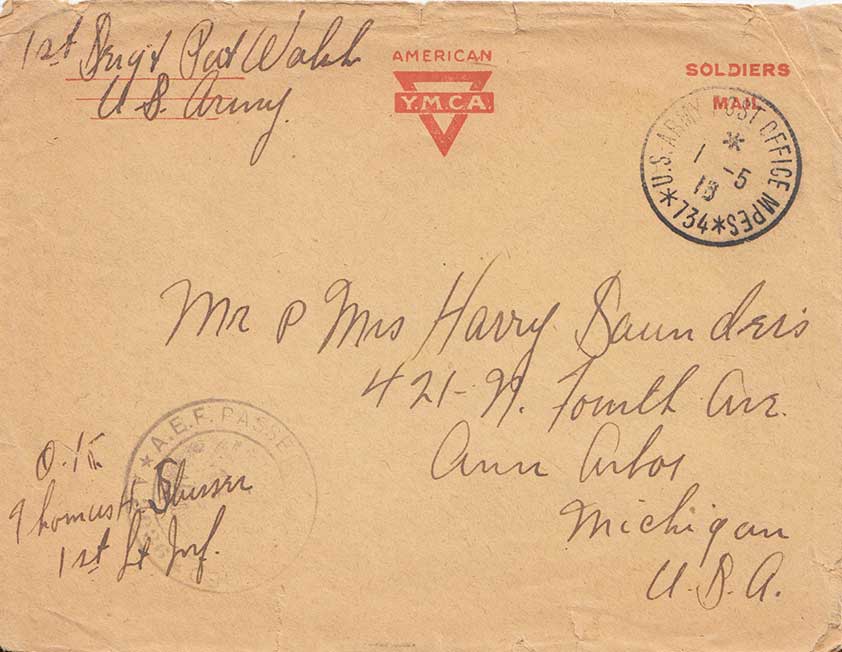 1st Sergt Pat Walsh
U.S. Army.
AMERICAN
Y.M.C.A.
SOLDIERS
MAIL
U.S. ARMY POST OFFICE MPES
* 734 *
1 -5
18
Mr & Mrs Harry Saunders
421-N. Fourth Ave.
Ann Arbor
Michigan
U.S.A.
A.E.F. PASSED
O.K.
Thomas H. Slusser
1st Lt Inf.